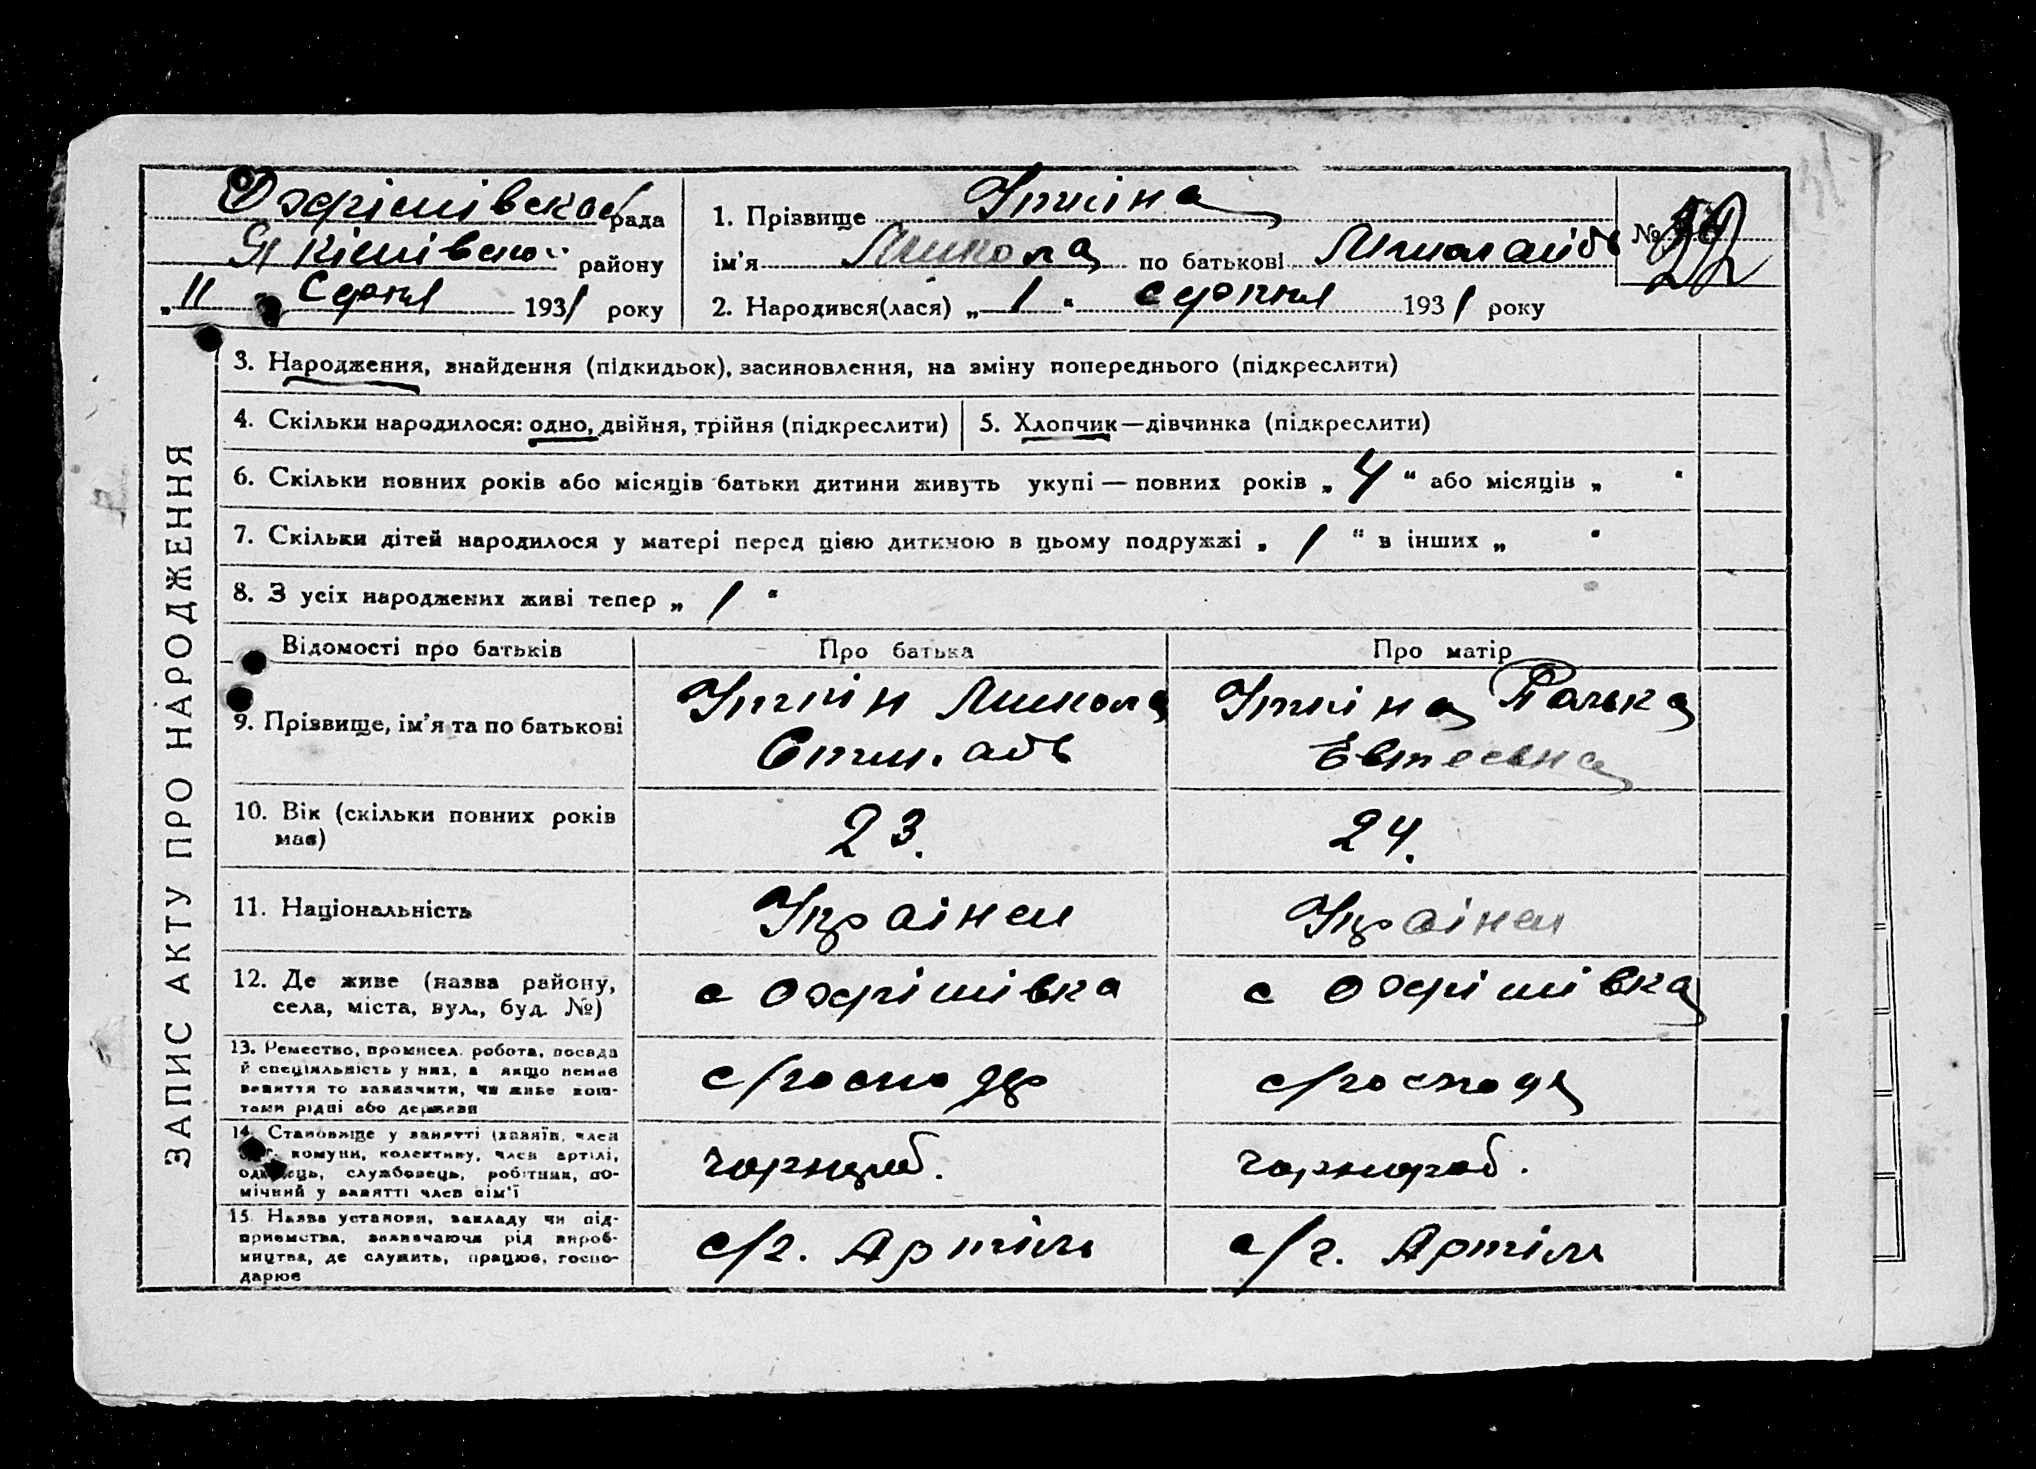 Охрімівської рада
Якімівсько району
„11 " Серпня 1931 року
1. Прізвище Уткіна
ім'я Микола по батькові
2. Народився(лася) „ 1 " серпня 1931 року
№ 22
ЗАПИС АКТУ ПРО НАРОДЖЕННЯ
3. Народження, знайдення (підкидьок), засиновлення, на зміну попереднього (підкреслити)
4. Скільки народилося: одно, двійня, трійня (підкреслити)
5. Хлопчик—дівчинка (підкреслити)
6. Скільки повних років або місяців батьки дитини живуть укупі — повних років „ 4 " або місяців „ "
7. Скільки дітей народилося у матері перед цією дитиною в цьому подружжі „ 1 " в інших „ "
8. З усіх народжених живі тепер „ 1 "
Відомості про батьків
Про батька
Про матір
9. Прізвище, ім'я та по батькові
Уткін Микола
Уткіна Палька
Евтеевна
10. Вік (скільки повних років
має)
23.
24.
11. Національність
Україцен
Україцен
12. Де живе (назва району,
села, міста, вул., буд. №)
с Охрімівка
с Охрімівка
13. Ремество, промисел, робота, посада
й спеціяльність у них, а якщо немає
заняття то зазначити, чи живе кош-
тами рідні або держави
с/господр
с/господ
14. Становище у занятті (хазяїн, член
с.-г. комуни, колективу, член артілі,
одинець, службовець, робітник, по-
мічний у занятті член сім'ї
чорнороб.
чорнороб.
15. Назва установи, закладу чи під-
приємства, зазначаючи рід вироб-
ництва, де служить, працює, госпо-
дарює
с/г. Артіль
с/г. Артіль